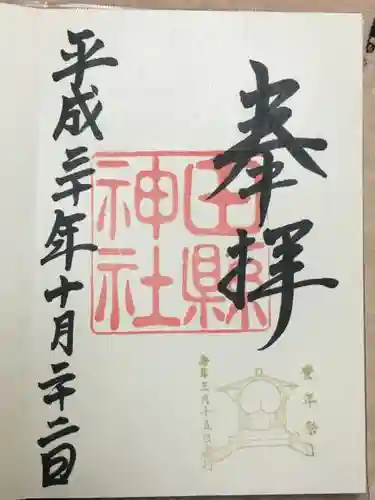 奉拝
田縣
神社
豊年祭
毎年三月十五日
平成三十年十月二十二日